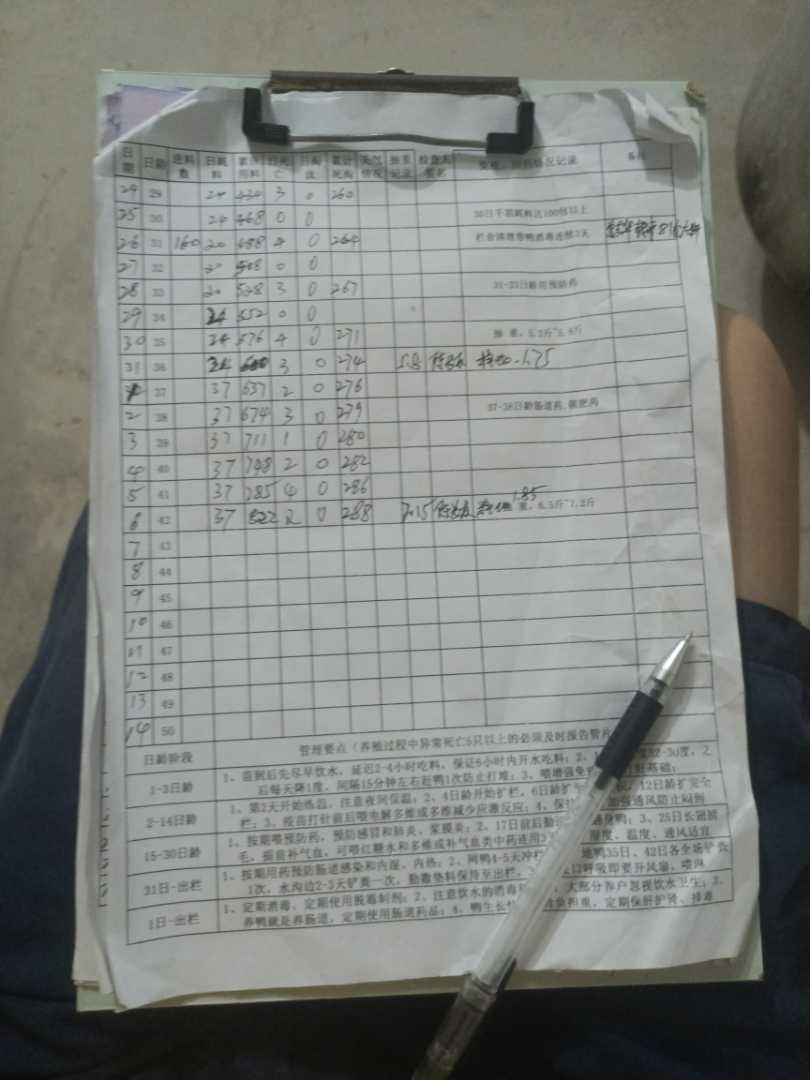 日期 日龄 进料数 日耗料 累计用料 日死亡 日淘汰 累计死淘 天气情况 称重记录 检查人签名 情况记录 备注
29 24 434 3 0 260
25 30 24 468 0 0 30日千羽耗料达100包以上
26 31 160 20 488 4 0 264 栏舍清理带鸭消毒连续3天
27 32 20 508 0 0
28 33 20 528 3 0 267 31-33日龄用预防药
29 34 24 552 0 0
30 35 24 576 4 0 271 重，5.2斤~5.6斤
31 36 24 600 3 0 274 5.8 1.75
37 37 637 2 0 276
2 38 37 674 3 0 279 37-38日龄肠道药、
3 39 37 711 1 0 280
4 40 37 748 2 0 282
5 41 37 785 4 0 286
6 42 37 822 2 0 288 7.15 1.85 重，6.5斤~7.2斤
7 43
8 44
9 45
10 46
11 47
12 48
13 49
14 50
日龄阶段 管理要点（养殖过程中异常死亡5只以上的必须及时报告
1-3日龄 1、苗到后先尽早饮水，延迟2-4小时吃料，保证6小时内开水吃料；2、 32-30度，
后每天降1度，间隔15分钟左右赶鸭1次防止打堆；3、 基础；
2-14日龄 1、第2天开始练温，注意夜间保温；2、4日龄开始扩栏，6日龄 12日龄扩完全
栏；3、疫苗打针前后喂电解多维或多维减少应激反应；4、 加强通风防止闷到
15-30日龄 1、按期喂预防药，预防感冒和肺炎、浆膜炎；2、17日前后 3、25日长翅
毛，提前补气血，可喂红糖水和多维或补气血类中药连用3 湿度、温度、通风适宜
31日-出栏 1、按期用药预防肠道感染和内湿、内热；2、网鸭4-5天冲栏 地鸭35日、42日各全场铲粪
1次，水沟边2-3天铲粪一次，勤撒垫料保持至出栏， 口呼吸即要开风扇、喷淋
1日-出栏 1、定期消毒、定期使用脱霉制剂；2、注意饮水的消毒 大部分养户忽视饮水卫生；3、
养鸭就是养肠道，定期使用肠道药品；4、鸭生长 负担重，定期保肝护肾、排毒